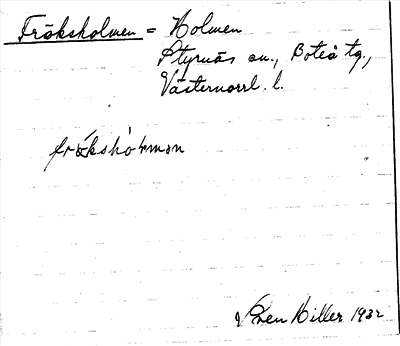 Fröksholmen = Holmen
Styrnäs sn., Boteå tg.,
Västernorrl. l.
frö̀kshòlmən
Sven Hiller 1932